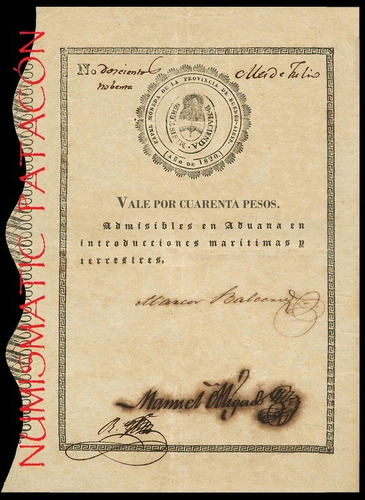 NUMISMATIC PATACÓN
No doscientos Mes de Julio
nobenta
PAPEL MONEDA DE LA PROVINCIA DE BUENOS-AIRES.
MINISTERIO D HACIENDA
AÑO DE 1820.
VALE POR CUARENTA PESOS.
Admisibles en Aduana en
introducciones marítimas y
terrestres.
Manuel